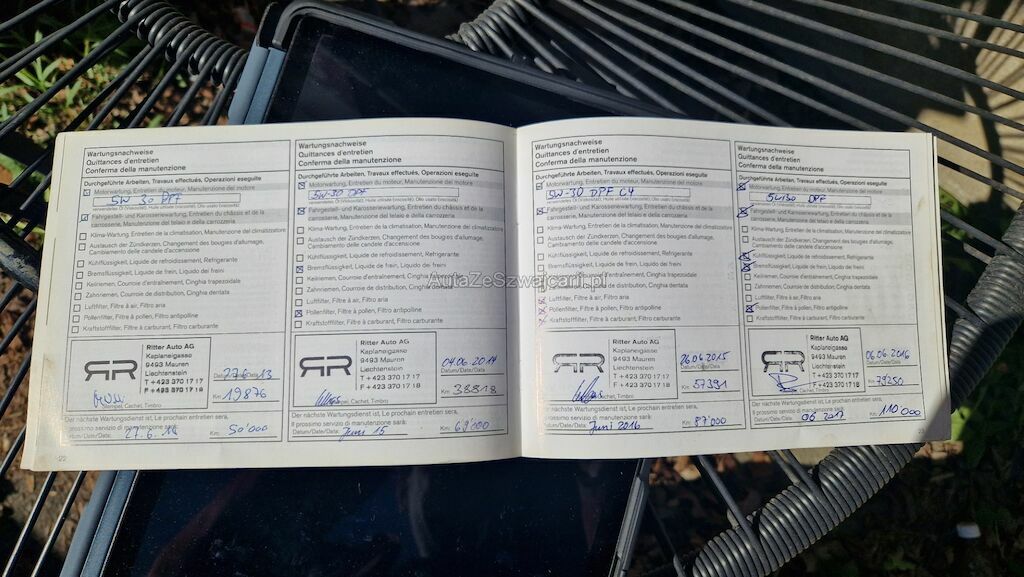 Wartungsnachweise
Quittances d'entretien
Conferma della manutenzione
Durchgeführte Arbeiten, Travaux effectués, Operazioni eseguite
Motorwartung, Entretien du moteur, Manutenzione del motore
5W 30 DPF
Fahrgestell- und Karosseriewartung, Entretien du châssis et de la
carrosserie, Manutenzione del telaio e della carrozzeria
Klima-Wartung, Entretien de la climatisation, Manutenzione del climatizzatore
Austausch der Zündkerzen, Changement des bougies d'allumage,
Cambiamento delle candele d'accensione
Kühlflüssigkeit, Liquide de refroidissement, Refrigerante
Bremsflüssigkeit, Liquide de frein, Liquido dei freni
Keilriemen, Courroie d'entraînement, Cinghia trapezoidale
Zahnriemen, Courroie de distribution, Cinghia dentata
Luftfilter, Filtre à air, Filtro aria
Pollenfilter, Filtre à pollen, Filtro antipolline
Kraftstofffilter, Filtre à carburant, Filtro carburante
RR
Ritter Auto AG
Kaplaneigasse
9493 Mauren
Liechtenstein
T +423 370 17 17
F +423 370 17 18
27.6.13
Datum/Date/Data:
Km: 19876
Stempel, Cachet, Timbro
Der nächste Wartungsdienst ist, Le prochain entretien sera,
Il prossimo servizio di manutenzione sarà:
Datum/Date/Data: 27.6.14 Km: 50'000
22
Wartungsnachweise
Quittances d'entretien
Conferma della manutenzione
Durchgeführte Arbeiten, Travaux effectués, Operazioni eseguite
Motorwartung, Entretien du moteur, Manutenzione del motore
5W-30 DPF
Fahrgestell- und Karosseriewartung, Entretien du châssis et de la
carrosserie, Manutenzione del telaio e della carrozzeria
Klima-Wartung, Entretien de la climatisation, Manutenzione del climatizzatore
Austausch der Zündkerzen, Changement des bougies d'allumage,
Cambiamento delle candele d'accensione
Kühlflüssigkeit, Liquide de refroidissement, Refrigerante
Bremsflüssigkeit, Liquide de frein, Liquido dei freni
Keilriemen, Courroie d'entraînement, Cinghia trapezoidale
Zahnriemen, Courroie de distribution, Cinghia dentata
Luftfilter, Filtre à air, Filtro aria
Pollenfilter, Filtre à pollen, Filtro antipolline
Kraftstofffilter, Filtre à carburant, Filtro carburante
RR
Ritter Auto AG
Kaplaneigasse
9493 Mauren
Liechtenstein
T +423 370 17 17
F +423 370 17 18
04.06.2014
Datum/Date/Data:
Km: 38818
Stempel, Cachet, Timbro
Der nächste Wartungsdienst ist, Le prochain entretien sera,
Il prossimo servizio di manutenzione sarà:
Datum/Date/Data: Juni 15 Km:
AutaZeSzwajcarii.pl
Wartungsnachweise
Quittances d'entretien
Conferma della manutenzione
Durchgeführte Arbeiten, Travaux effectués, Operazioni eseguite
Motorwartung, Entretien du moteur, Manutenzione del motore
5W-30 DPF C4
Fahrgestell- und Karosseriewartung, Entretien du châssis et de la
carrosserie, Manutenzione del telaio e della carrozzeria
Klima-Wartung, Entretien de la climatisation, Manutenzione del climatizzatore
Austausch der Zündkerzen, Changement des bougies d'allumage,
Cambiamento delle candele d'accensione
Kühlflüssigkeit, Liquide de refroidissement, Refrigerante
Bremsflüssigkeit, Liquide de frein, Liquido dei freni
Keilriemen, Courroie d'entraînement, Cinghia trapezoidale
Zahnriemen, Courroie de distribution, Cinghia dentata
Luftfilter, Filtre à air, Filtro aria
Pollenfilter, Filtre à pollen, Filtro antipolline
Kraftstofffilter, Filtre à carburant, Filtro carburante
RR
Ritter Auto AG
Kaplaneigasse
9493 Mauren
Liechtenstein
T +423 370 17 17
F +423 370 17 18
26.06.2015
Datum/Date/Data:
Km: 57391
Stempel, Cachet, Timbro
Der nächste Wartungsdienst ist, Le prochain entretien sera,
Il prossimo servizio di manutenzione sarà:
Datum/Date/Data: Juni 2016 Km: 87'000
Wartungsnachweise
Quittances d'entretien
Conferma della manutenzione
Durchgeführte Arbeiten, Travaux effectués, Operazioni eseguite
Motorwartung, Entretien du moteur, Manutenzione del motore
5W30 DPF
Fahrgestell- und Karosseriewartung, Entretien du châssis et de la
carrosserie, Manutenzione del telaio e della carrozzeria
Klima-Wartung, Entretien de la climatisation, Manutenzione del climatizzatore
Austausch der Zündkerzen, Changement des bougies d'allumage,
Cambiamento delle candele d'accensione
Kühlflüssigkeit, Liquide de refroidissement, Refrigerante
Bremsflüssigkeit, Liquide de frein, Liquido dei freni
Keilriemen, Courroie d'entraînement, Cinghia trapezoidale
Zahnriemen, Courroie de distribution, Cinghia dentata
Luftfilter, Filtre à air, Filtro aria
Pollenfilter, Filtre à pollen, Filtro antipolline
Kraftstofffilter, Filtre à carburant, Filtro carburante
RR
Ritter Auto AG
Kaplaneigasse
9493 Mauren
Liechtenstein
T +423 370 17 17
F +423 370 17 18
06.06.2016
Datum/Date/Data:
Km: 79250
Stempel, Cachet, Timbro
Der nächste Wartungsdienst ist, Le prochain entretien sera,
Il prossimo servizio di manutenzione sarà:
Datum/Date/Data: 06.2017 Km: 110000
23